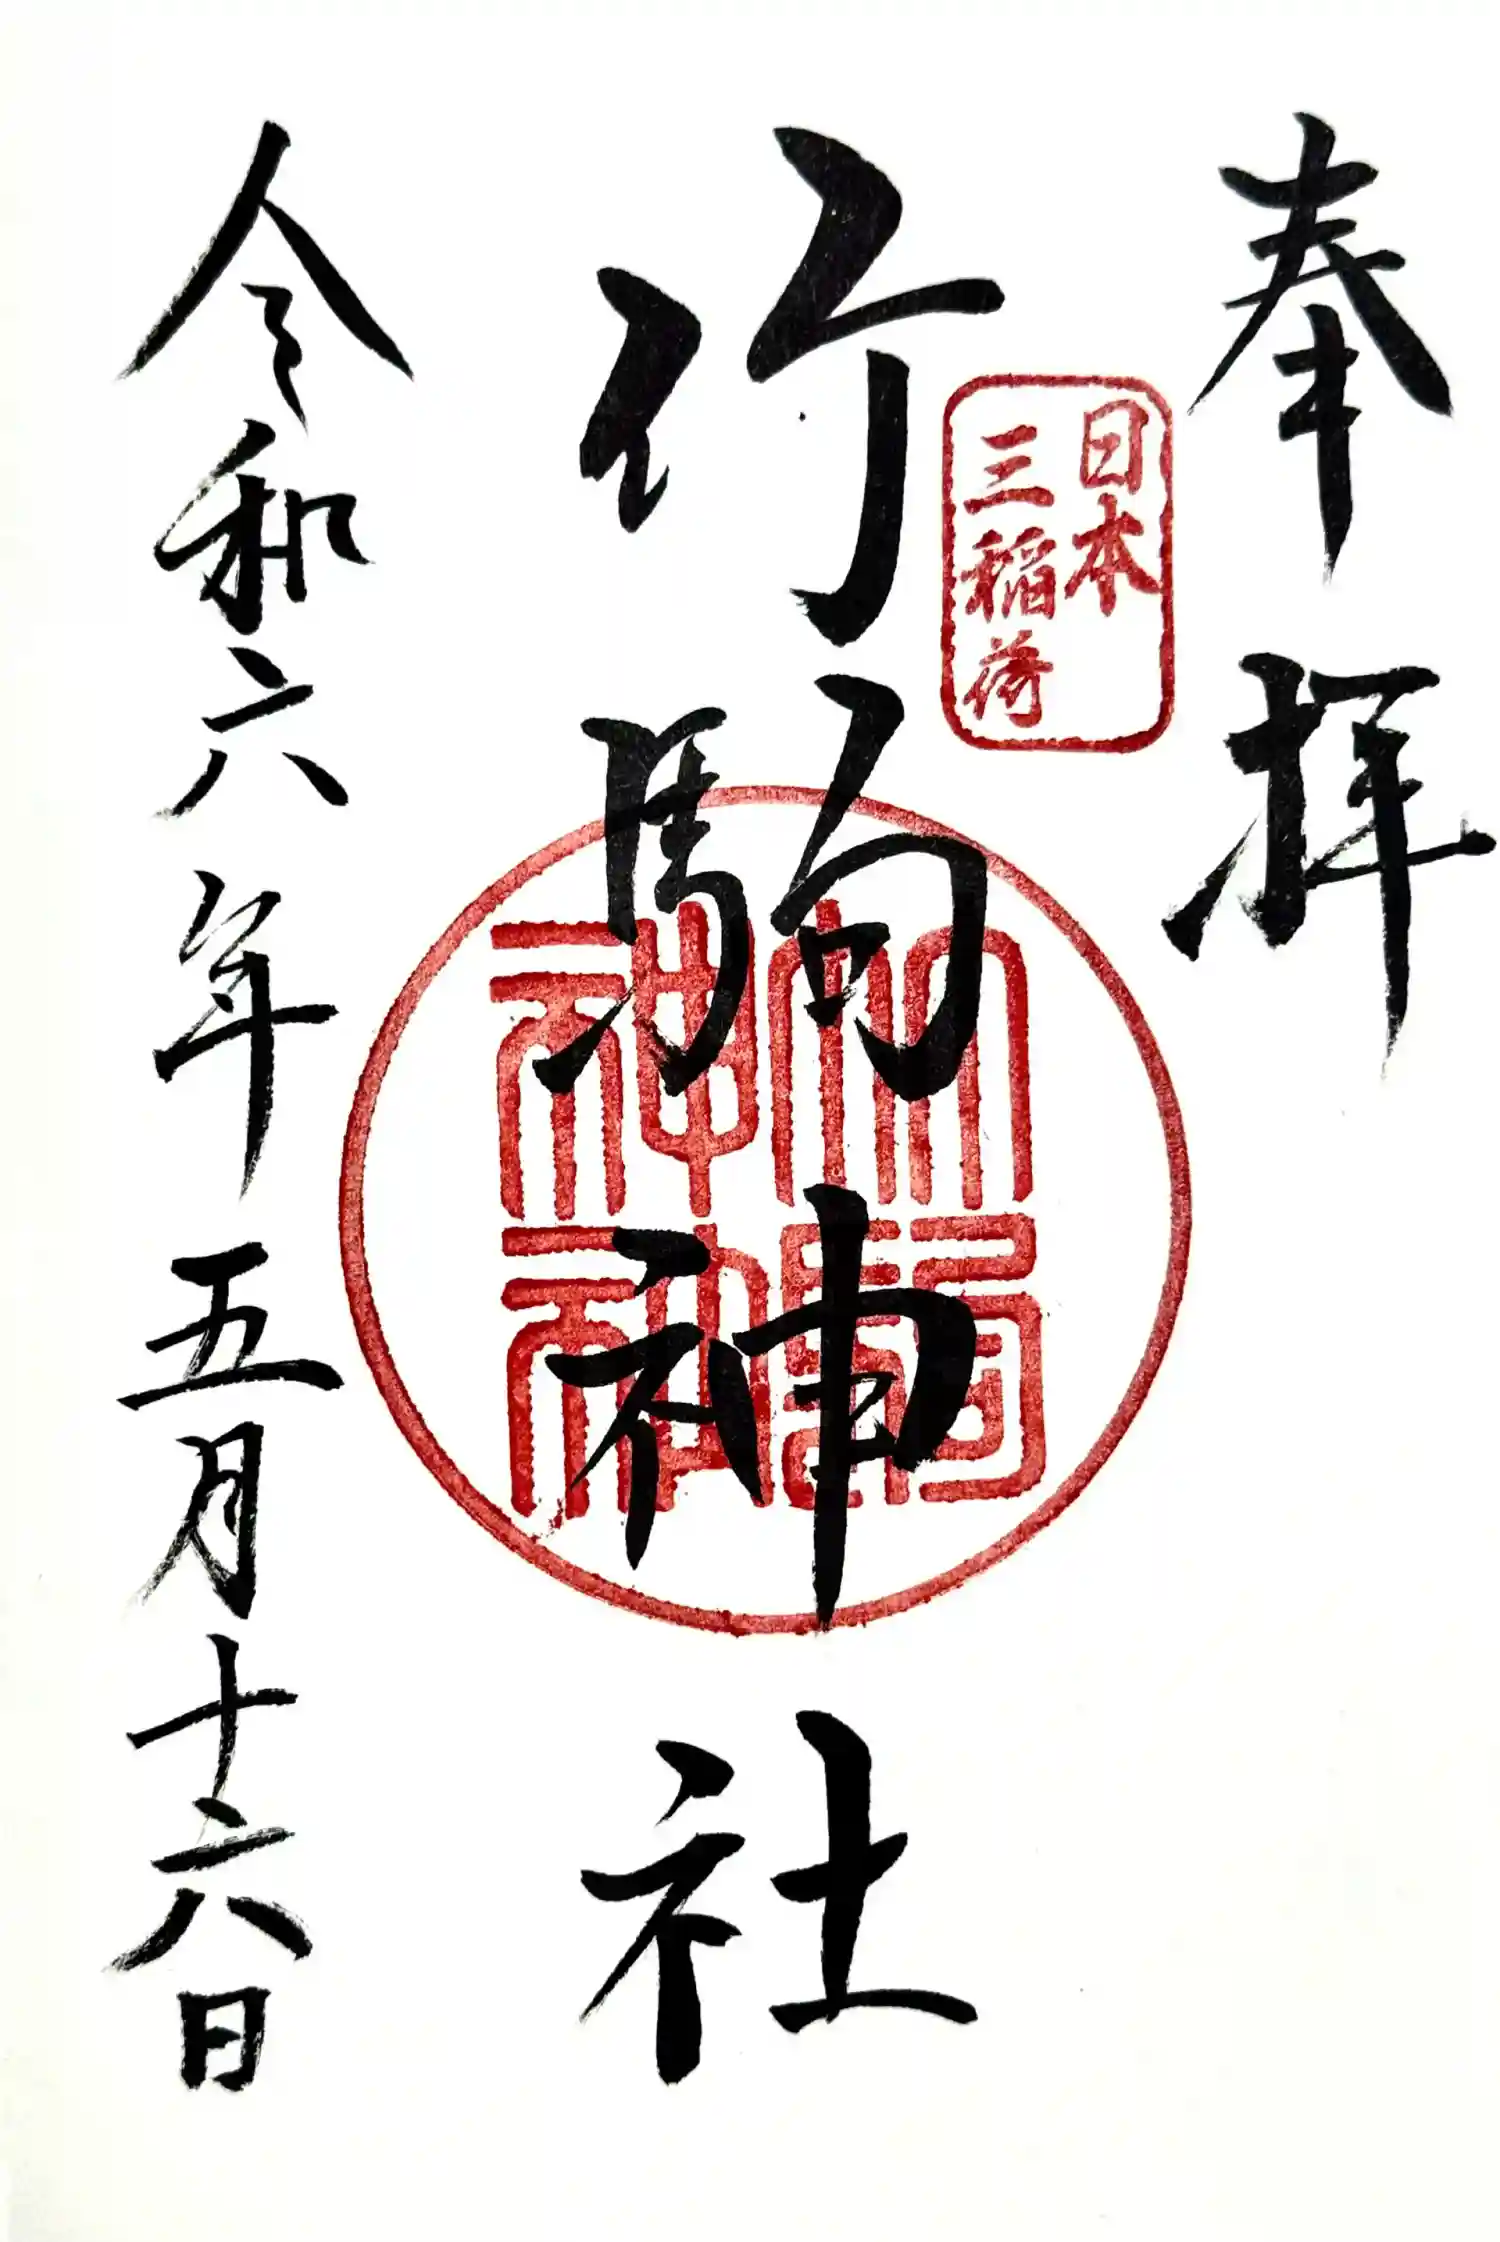 奉拝
日本
三稲荷
竹駒神社
竹駒
神社
令和六年五月十六日